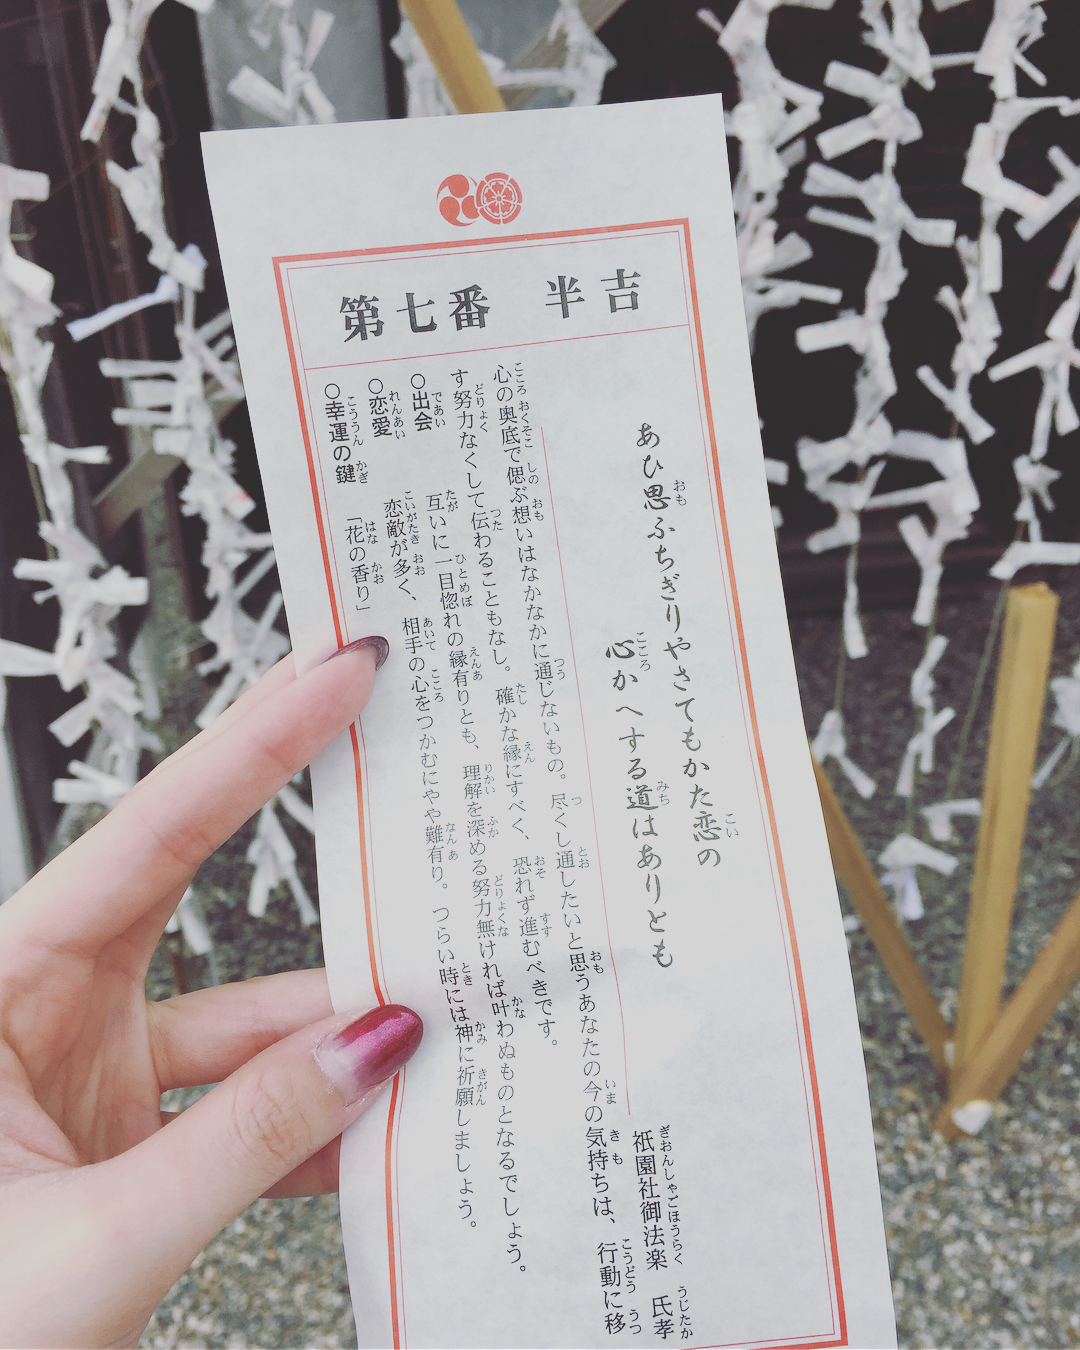 第七番 半吉
あひ思ふちぎりやさてもかた恋の
心かへする道はありとも
祇園社御法楽 氏孝
心の奥底で偲ぶ想いはなかなかに通じないもの。尽くし通したいと思うあなたの今の気持ちは、行動に移
す努力なくして伝わることもなし。確かな縁にすべく、恐れず進むべきです。
○出会 互いに一目惚れの縁有りとも、理解を深める努力無ければ叶わぬものとなるでしょう。
○恋愛 恋敵が多く、相手の心をつかむにやや難有り。つらい時には神に祈願しましょう。
○幸運の鍵 「花の香り」